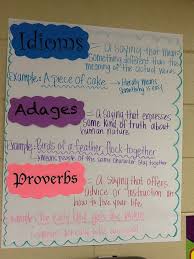 Idioms - A saying that means
something different than the
meaning of the actual words.
Example: A piece of cake → literally means
something is easy
Adages - A saying that expresses
some kind of truth about
human nature.
Example: Birds of a feather flock together
→ means people of the same character stay together
Proverbs - A saying that offers
advice or instruction on
how to live your life.
Example: The early bird gets the worm